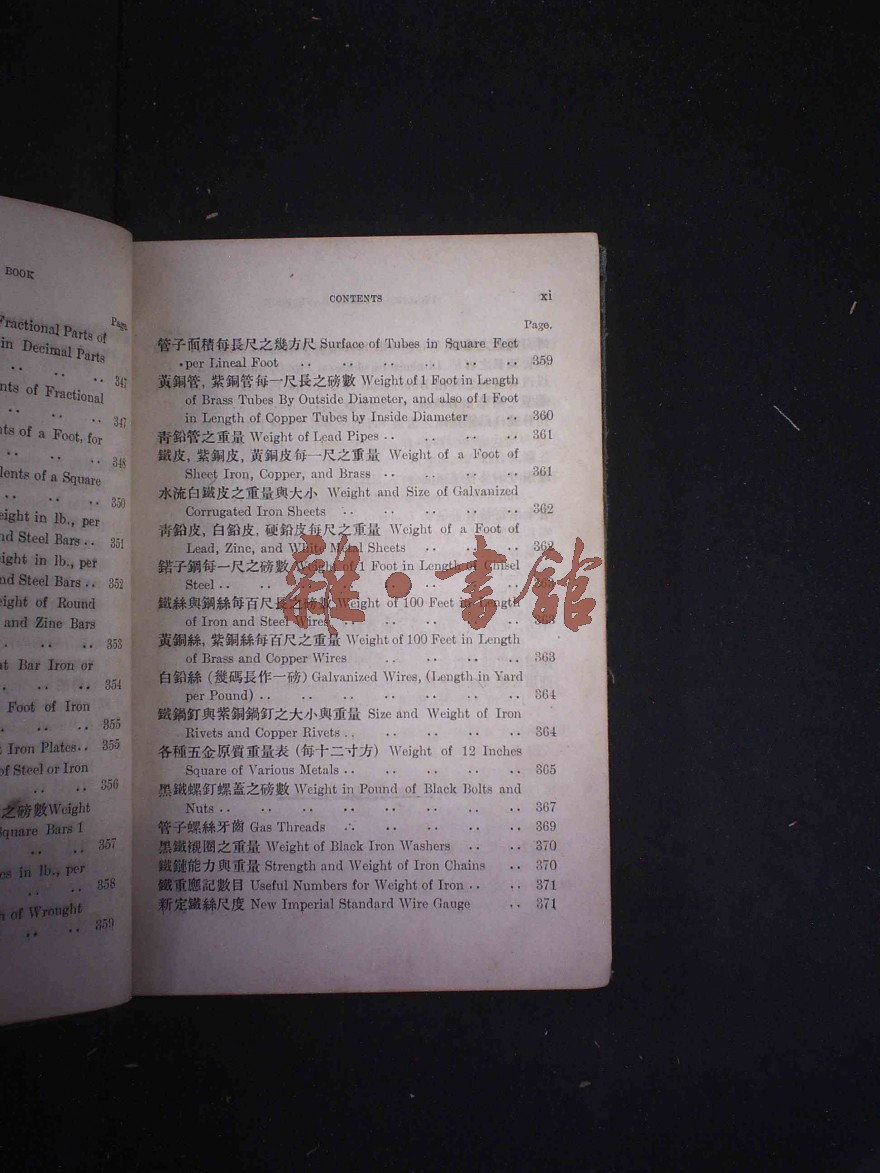 BOOK
Page
Fractional Parts of
in Decimal Parts
.. .. .. 347
nts of Fractional
.. .. .. 347
nts of a Foot, for
.. .. .. 348
lents of a Square
.. .. .. 350
eight in lb., per
nd Steel Bars .. 351
eight in lb., per
nd Steel Bars .. 352
eight of Round
and Zinc Bars
.. .. .. 353
at Bar Iron or
.. .. .. 354
Foot of Iron
.. .. .. 355
t Iron Plates .. 355
of Steel or Iron
.. .. .. 356
之磅數 Weight
Square Bars 1
.. .. 357
es in lb., per
.. .. 358
of Wrought
.. .. 359
CONTENTS xi
Page.
管子面積每長尺之幾方尺 Surface of Tubes in Square Feet
per Lineal Foot .. .. .. .. .. .. 359
黃銅管, 紫銅管每一尺長之磅數 Weight of 1 Foot in Length
of Brass Tubes By Outside Diameter, and also of 1 Foot
in Length of Copper Tubes by Inside Diameter .. 360
靑鉛管之重量 Weight of Lead Pipes .. .. .. .. 361
鐵皮, 紫銅皮, 黃銅皮每一尺之重量 Weight of a Foot of
Sheet Iron, Copper, and Brass .. .. .. .. 361
水流白鐵皮之重量與大小 Weight and Size of Galvanized
Corrugated Iron Sheets .. .. .. .. .. 362
靑鉛皮, 白鉛皮, 硬鉛皮每尺之重量 Weight of a Foot of
Lead, Zinc, and White Metal Sheets .. .. .. 362
鍩子鋼每一尺之磅數 Weight of 1 Foot in Length of Chisel
Steel .. .. .. .. .. .. .. .. 363
鐵絲與鋼絲每百尺長之磅數 Weight of 100 Feet in Length
of Iron and Steel Wires .. .. .. .. .. 363
黃銅絲, 紫銅絲每百尺之重量 Weight of 100 Feet in Length
of Brass and Copper Wires .. .. .. .. 363
白鉛絲 (幾碼長作一磅) Galvanized Wires, (Length in Yard
per Pound) .. .. .. .. .. .. .. 364
鐵鍋釘與紫銅鍋釘之大小與重量 Size and Weight of Iron
Rivets and Copper Rivets .. .. .. .. .. 364
各種五金原質重量表 (每十二寸方) Weight of 12 Inches
Square of Various Metals .. .. .. .. .. 365
黑鐵螺釘螺蓋之磅數 Weight in Pound of Black Bolts and
Nuts .. .. .. .. .. .. .. .. 367
管子螺絲牙齒 Gas Threads .. .. .. .. .. 369
黑鐵襯圈之重量 Weight of Black Iron Washers .. .. 370
鐵鏈能力與重量 Strength and Weight of Iron Chains .. 370
鐵重應記數目 Useful Numbers for Weight of Iron .. .. 371
新定鐵絲尺度 New Imperial Standard Wire Gauge .. 371
雜·書館